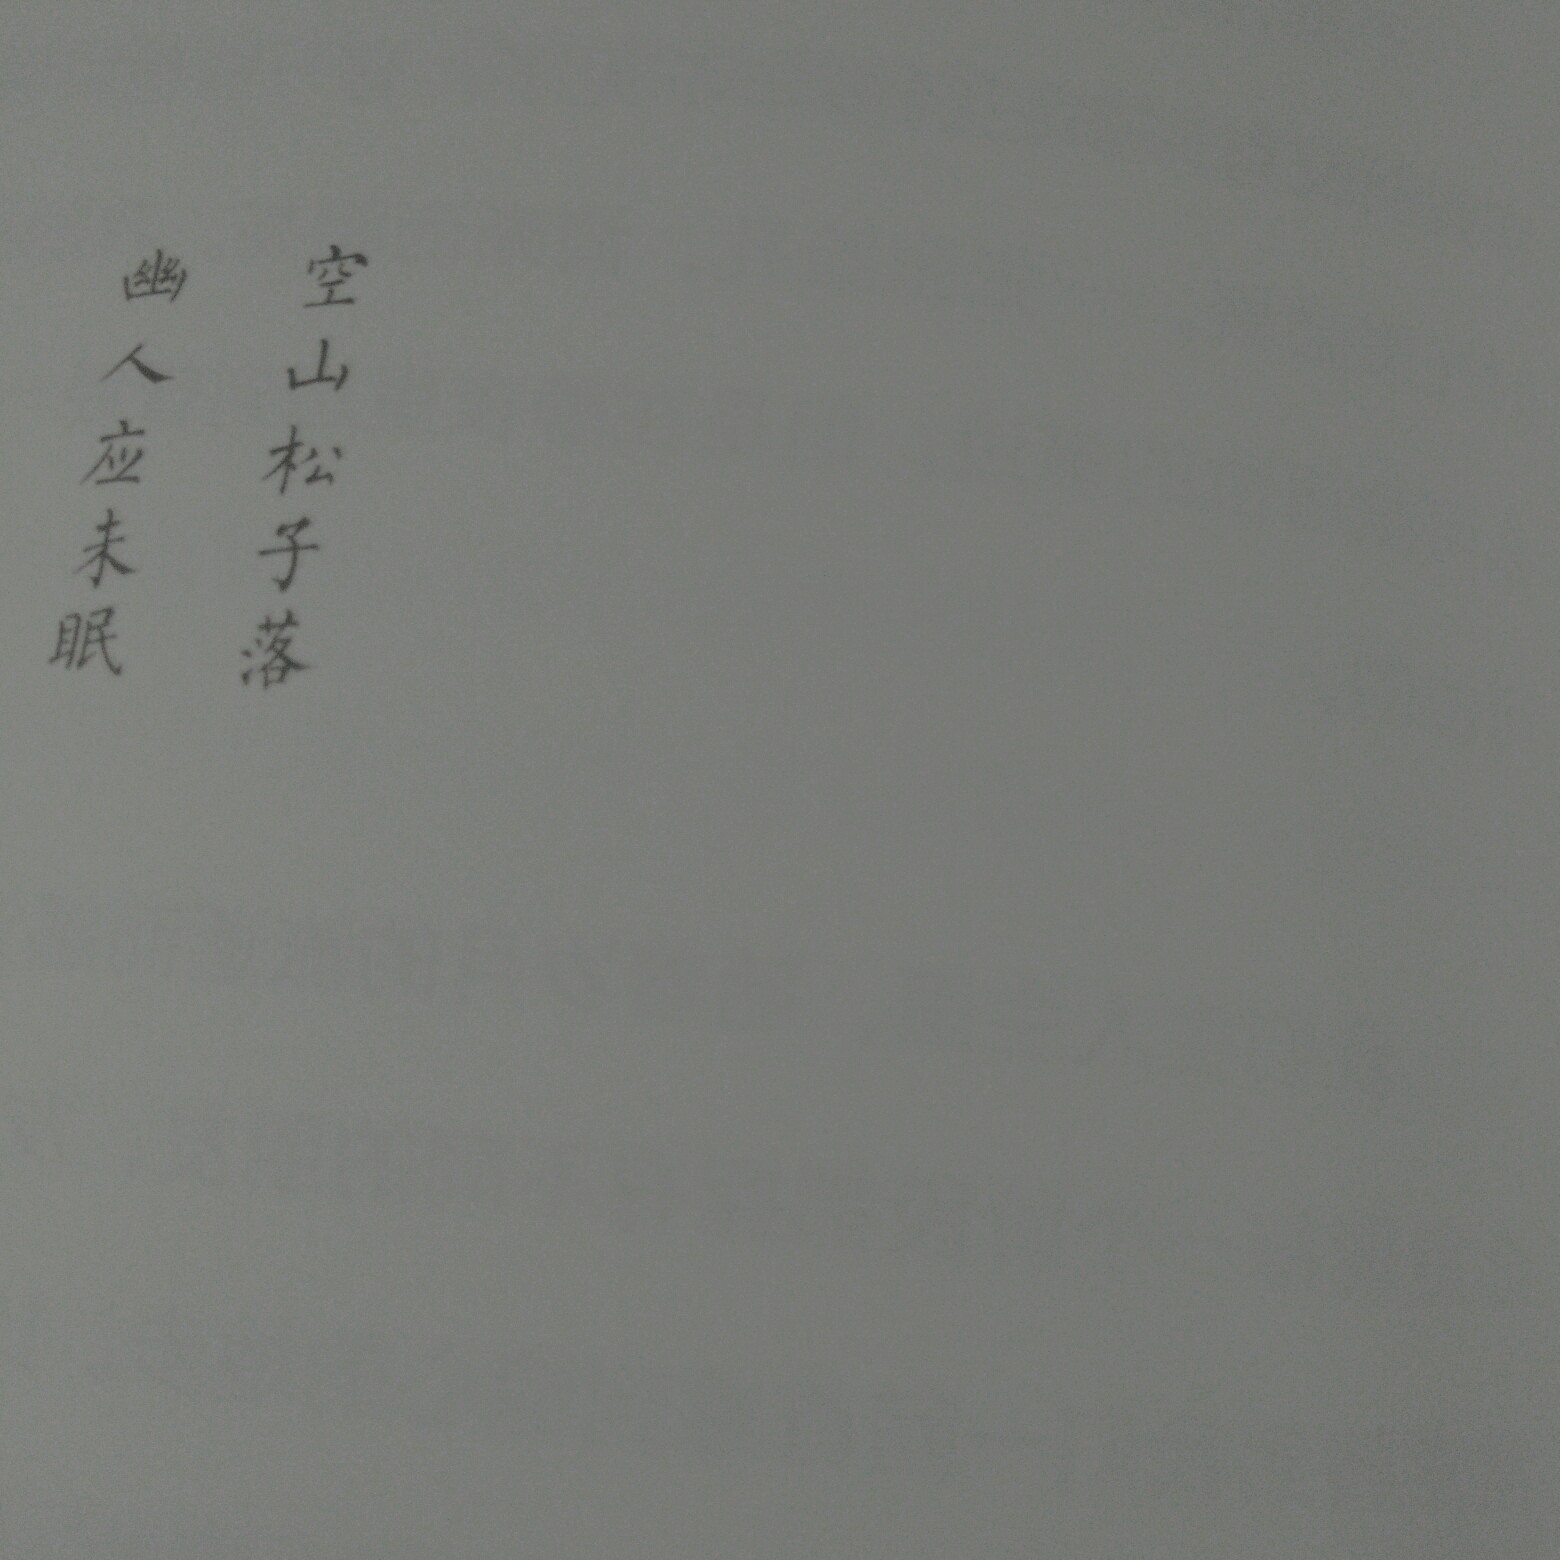 空山松子落
幽人应未眠